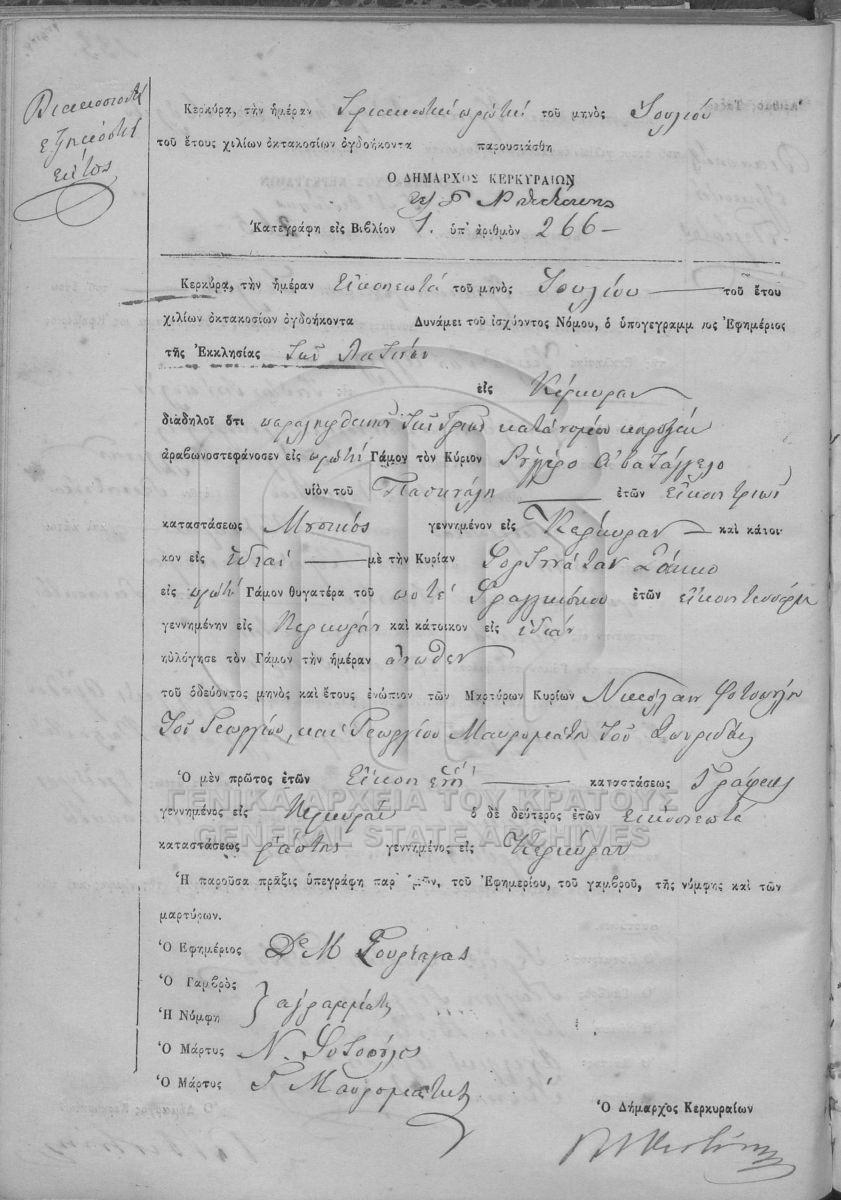 Διακοσιοστή
εξηκοστή
έκτος
Κερκύρα, τὴν ἡμέραν Τριακοστή πρώτη τοῦ μηνὸς Ἰουλίου
τοῦ ἔτους χιλίων ὀκτακοσίων ὀγδοήκοντα παρουσιάσθη
Ο ΔΗΜΑΡΧΟΣ ΚΕΡΚΥΡΑΙΩΝ
Κατεγράφη εἰς Βιβλίον 1. ὑπ' ἀριθμὸν 266 —
Κερκύρα, τὴν ἡμέραν Εἰκοσιεπτά τοῦ μηνὸς Ἰουλίου — τοῦ ἔτου
χιλίων ὀκτακοσίων ὀγδοήκοντα Δυνάμει τοῦ ἰσχύοντος Νόμου, ὁ ὑπογεγραμμ νος Ἐφημέριος
τῆς Ἐκκλησίας τῶν Λατίνων
εἰς Κέρκυραν
διαδηλοῖ ὅτι τῶν τριῶν κατά νόμον
ἀραβωνοστεφάνοσεν εἰς πρώτη Γάμον τὸν Κύριον
υἱὸν τοῦ Πασκουάλη — ἐτῶν εἴκοσι τριῶν
καταστάσεως Μουσικός γεννημένον εἰς Κέρκυραν — καὶ κάτοι-
κον εἰς ἰδίαν — μὲ τὴν Κυρίαν Φορτουνάταν
εἰς πρώτη Γάμον θυγατέρα τοῦ ποτέ Φραγκίσκου ἐτῶν εἴκοσι τεσσάρω
γεννημένην εἰς Κέρκυραν καὶ κάτοικον εἰς ἰδίαν
ηὐλόγησε τὸν Γάμον τὴν ἡμέραν ἄνωθεν
τοῦ ὁδεύοντος μηνὸς καὶ ἔτους ἐνώπιον τῶν Μαρτύρων Κυρίων Νικόλαον Φοτοπούλη
τοῦ Γεωργίου, καί Γεωργίου Μαυρομάτη τοῦ Σπυρίδος
Ὁ μὲν πρῶτος ἐτῶν Εἴκοσι — καταστάσεως Γραφεύς
γεννημένος εἰς Κερκυραν ὁ δὲ δεύτερος ἐτῶν Εικοσιεπτά
καταστάσεως ράπτης γεννημένος εἰς Κέρκυραν
Ἡ παροῦσα πρᾶξις ὑπεγράφη παρ' ἡμῶν, τοῦ Ἐφημερίου, τοῦ γαμβροῦ, τῆς νύμφης καὶ τῶν
μαρτύρων.
Ὁ Ἐφημέριος
Ὁ Γαμβρὸς
Ἡ Νύμφη } αγραμμάτοι
Ὁ Μάρτυς Ν. Φοτοπούλος
Ὁ Μάρτυς Γ Μαυρομάτης
Ὁ Δήμαρχος Κερκυραίων
ΓΕΝΙΚΑ ΑΡΧΕΙΑ ΤΟΥ ΚΡΑΤΟΥΣ
GENERAL STATE ARCHIVES